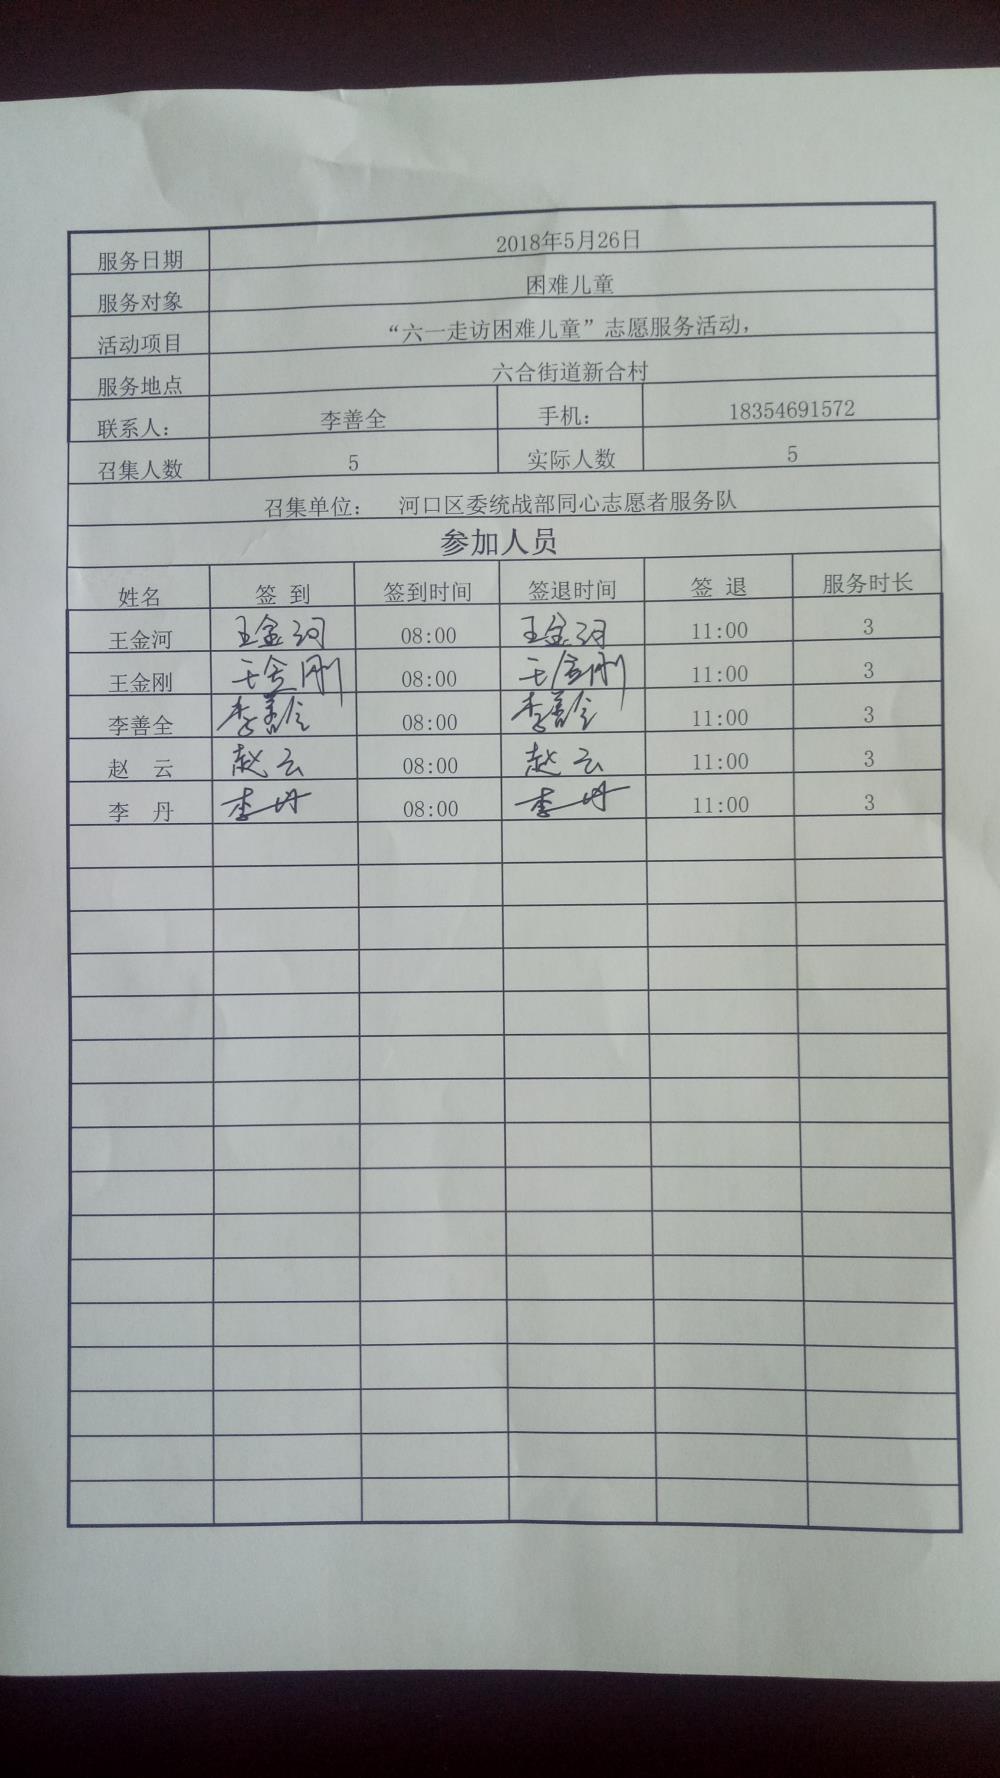 服务日期 2018年5月26日
服务对象 困难儿童
活动项目 “六一走访困难儿童”志愿服务活动，
服务地点 六合街道新合村
联系人： 李善全 手机： 18354691572
召集人数 5 实际人数 5
召集单位： 河口区委统战部同心志愿者服务队
参加人员
姓名 签 到 签到时间 签退时间 签 退 服务时长
王金河 王金河 08:00 王金河 11:00 3
王金刚 王金刚 08:00 王金刚 11:00 3
李善全 李善全 08:00 李善全 11:00 3
赵 云 赵云 08:00 赵云 11:00 3
李 丹 李丹 08:00 李丹 11:00 3